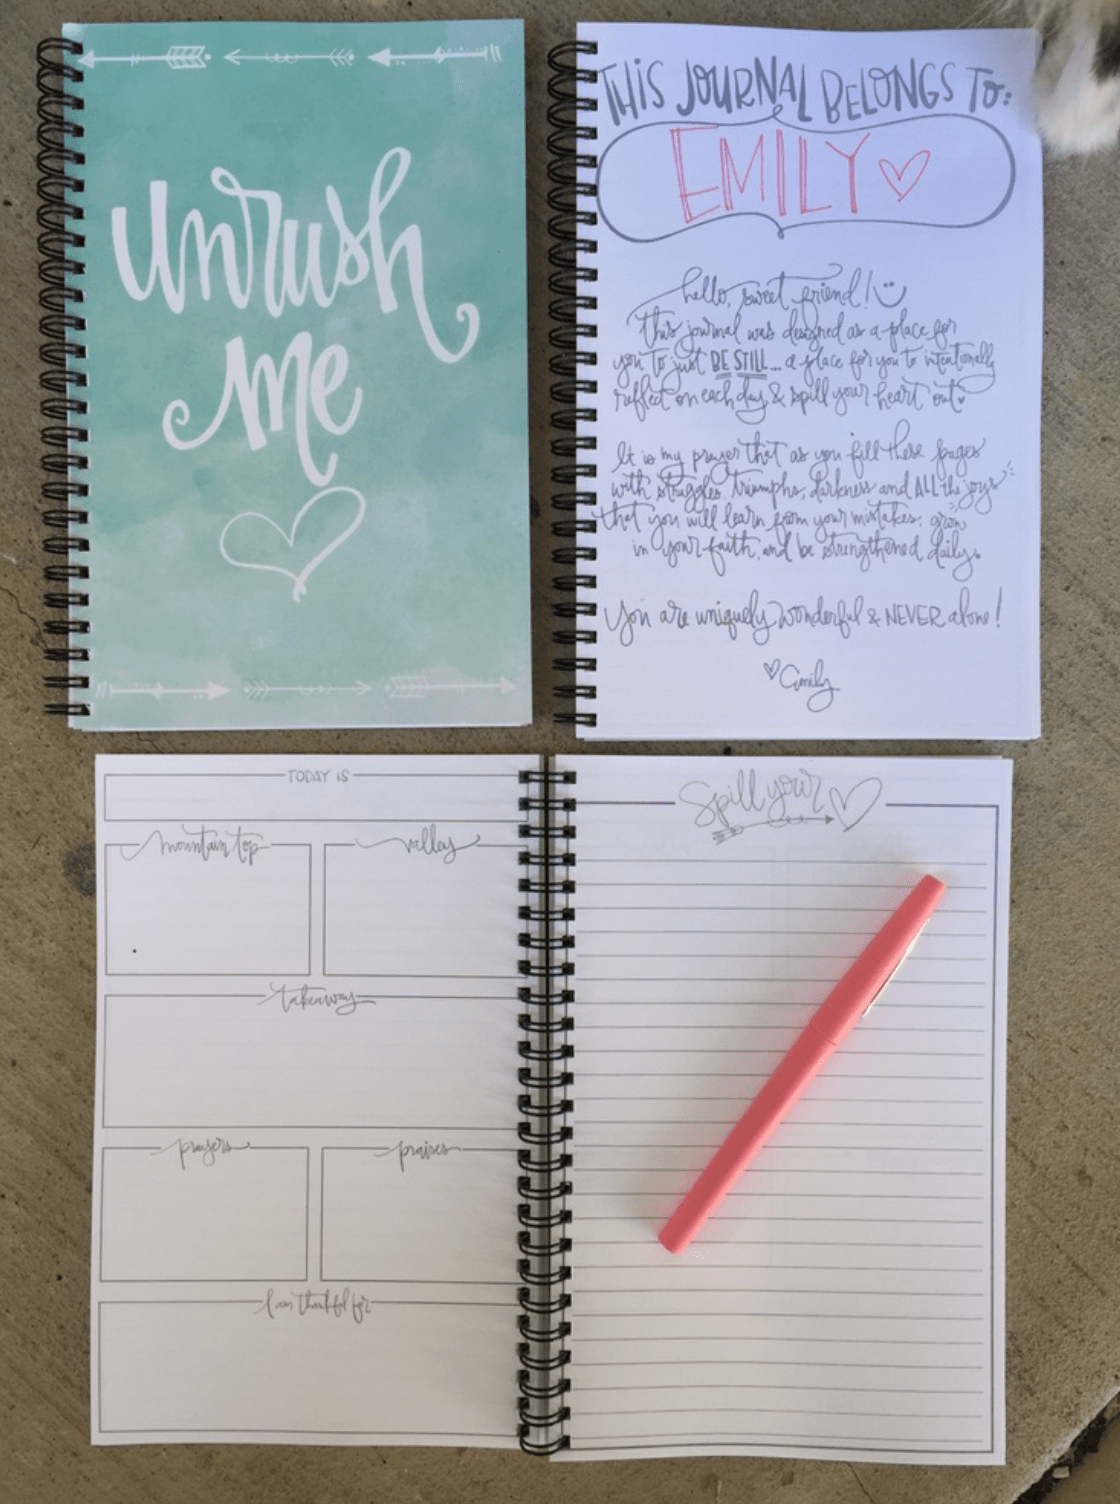 unrush
me
THIS JOURNAL BELONGS TO:
EMILY
hello, sweet friend!
this journal was designed as a place for
you to just BE STILL... a place for you to intentionally
reflect on each day & spill your heart out.
It is my prayer that as you fill these pages
with struggles, triumphs, darkness and ALL the joys
that you will learn from your mistakes, grow
in your faith, and be strengthened daily.
You are uniquely wonderful & NEVER alone!
Emily
TODAY IS
mountain top
valley
takeaway
prayers
praises
I am thankful for
Spill your